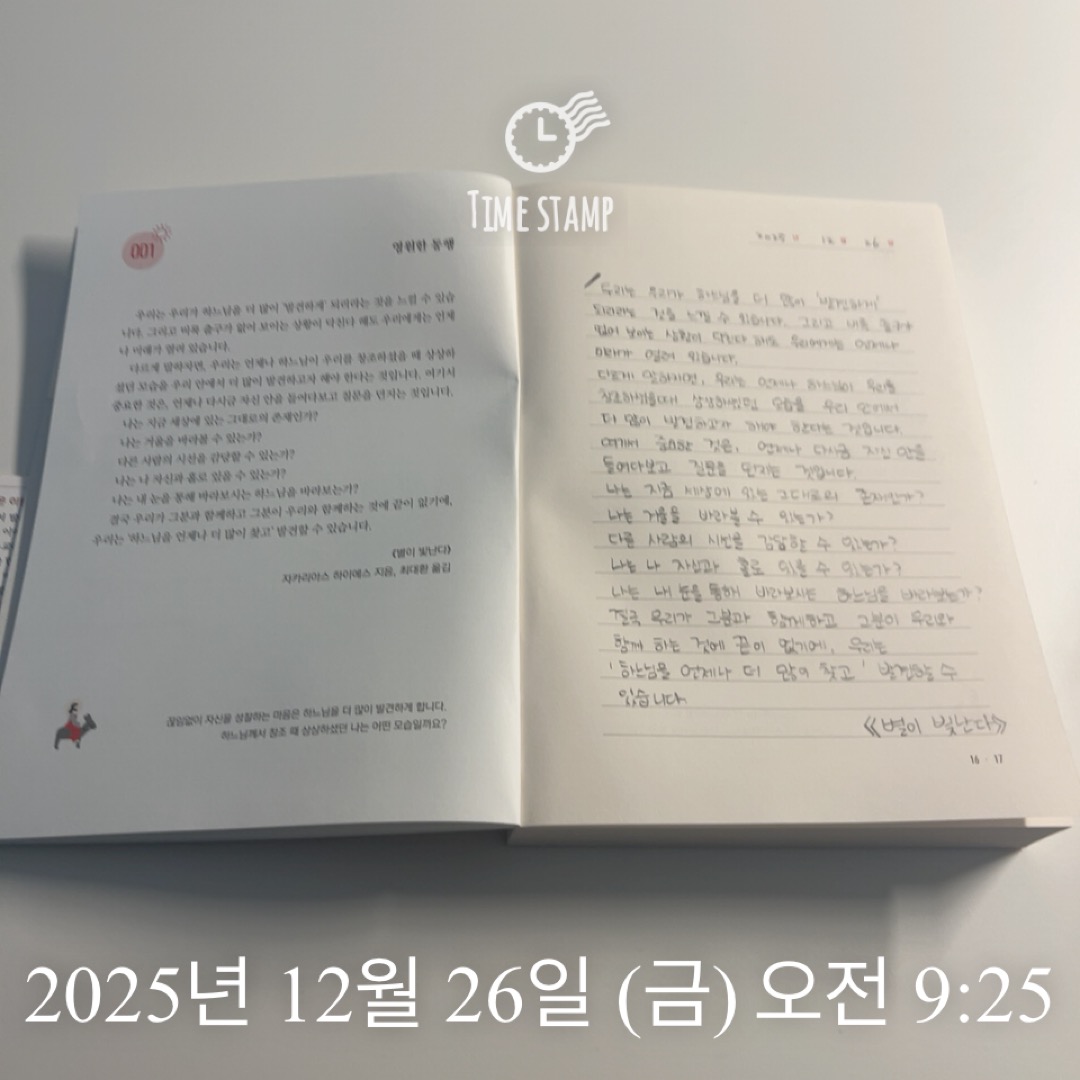 TIME STAMP
001
영원한 동행
우리는 우리가 하느님을 더 많이 '발견하게' 되리라는 것을 느낄 수 있습
니다. 그리고 비록 출구가 없어 보이는 상황이 닥친다 해도 우리에게는 언제
나 미래가 열려 있습니다.
다르게 말하자면, 우리는 언제나 하느님이 우리를 창조하셨을 때 상상하
셨던 모습을 우리 안에서 더 많이 발견하고자 해야 한다는 것입니다. 여기서
중요한 것은, 언제나 다시금 자신 안을 들여다보고 질문을 던지는 것입니다.
나는 지금 세상에 있는 그대로의 존재인가?
나는 거울을 바라볼 수 있는가?
다른 사람의 시선을 감당할 수 있는가?
나는 나 자신과 홀로 있을 수 있는가?
나는 내 눈을 통해 바라보시는 하느님을 바라보는가?
결국 우리가 그분과 함께하고 그분이 우리와 함께하는 것에 끝이 없기에,
우리는 '하느님을 언제나 더 많이 찾고' 발견할 수 있습니다.
《별이 빛난다》
자카리아스 하이에스 지음, 최대환 옮김
끊임없이 자신을 성찰하는 마음은 하느님을 더 많이 발견하게 합니다.
하느님께서 창조 때 상상하셨던 나는 어떤 모습일까요?
2025 12 26
우리는 우리가 하느님을 더 많이 '발견하게'
되리라는 것을 느낄 수 있습니다. 그리고 비록 출구가
없어 보이는 상황이 닥친다 해도 우리에게는 언제나
미래가 열려 있습니다.
다르게 말하자면, 우리는 언제나 하느님이 우리를
창조하셨을때 상상하셨던 모습을 우리 안에서
더 많이 발견하고자 해야 한다는 것입니다.
여기서 중요한 것은, 언제나 다시금 자신 안을
들여다보고 질문을 던지는 것입니다.
나는 지금 세상에 있는 그대로의 존재인가?
나는 거울을 바라볼 수 있는가?
다른 사람의 시선을 감당할 수 있는가?
나는 나 자신과 홀로 있을 수 있는가?
나는 내 눈을 통해 바라보시는 하느님을 바라보는가?
결국 우리가 그분과 함께하고 그분이 우리와
함께 하는 것에 끝이 없기에, 우리는
'하느님을 언제나 더 많이 찾고' 발견할 수
있습니다.
《별이 빛난다》
16 · 17
2025년 12월 26일 (금) 오전 9:25